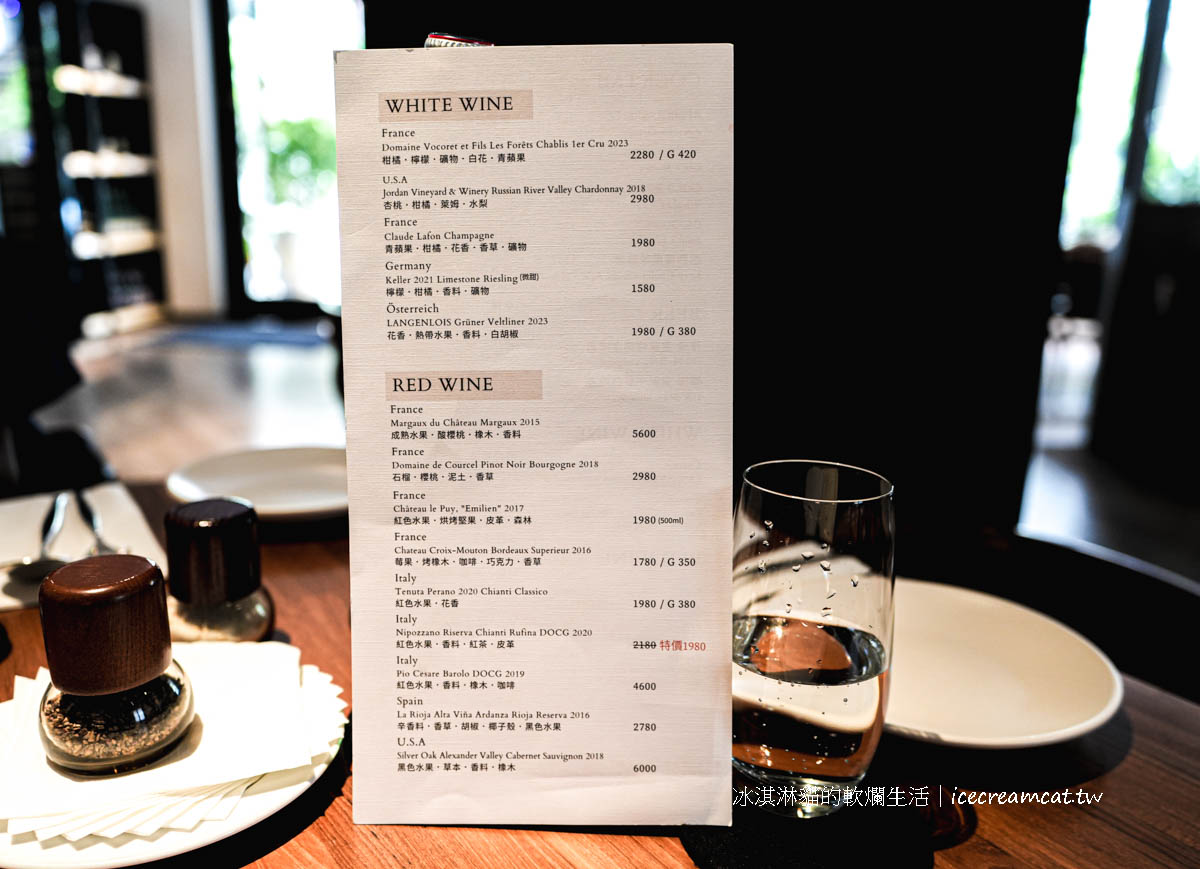 WHITE WINE
France
Domaine Vocoret et Fils Les Forêts Chablis 1er Cru 2023
柑橘・檸檬・礦物・白花・青蘋果 2280 / G 420
U.S.A
Jordan Vineyard & Winery Russian River Valley Chardonnay 2018
杏桃・柑橘・萊姆・水梨 2980
France
Claude Lafon Champagne
青蘋果・柑橘・花香・香草・礦物 1980
Germany
Keller 2021 Limestone Riesling (微甜)
檸檬・柑橘・香料・礦物 1580
Österreich
LANGENLOIS Grüner Veltliner 2023
花香・熱帶水果・香料・白胡椒 1980 / G 380
RED WINE
France
Margaux du Château Margaux 2015
成熟水果・酸櫻桃・橡木・香料 5600
France
Domaine de Courcel Pinot Noir Bourgogne 2018
石榴・櫻桃・泥土・香草 2980
France
Château le Puy, "Emilien" 2017
紅色水果・烘烤堅果・皮革・森林 1980 (500ml)
France
Chateau Croix-Mouton Bordeaux Superieur 2016
莓果・烤橡木・咖啡・巧克力・香草 1780 / G 350
Italy
Tenuta Perano 2020 Chianti Classico
紅色水果・花香 1980 / G 380
Italy
Nipozzano Riserva Chianti Rufina DOCG 2020
紅色水果・香料・紅茶・皮革 2180 特價1980
Italy
Pio Cesare Barolo DOCG 2019
紅色水果・香料・橡木・咖啡 4600
Spain
La Rioja Alta Viña Ardanza Rioja Reserva 2016
辛香料・香草・胡椒・椰子殼・黑色水果 2780
U.S.A
Silver Oak Alexander Valley Cabernet Sauvignon 2018
黑色水果・草本・香料・橡木 6000
冰淇淋貓的軟爛生活｜icecreamcat.tw